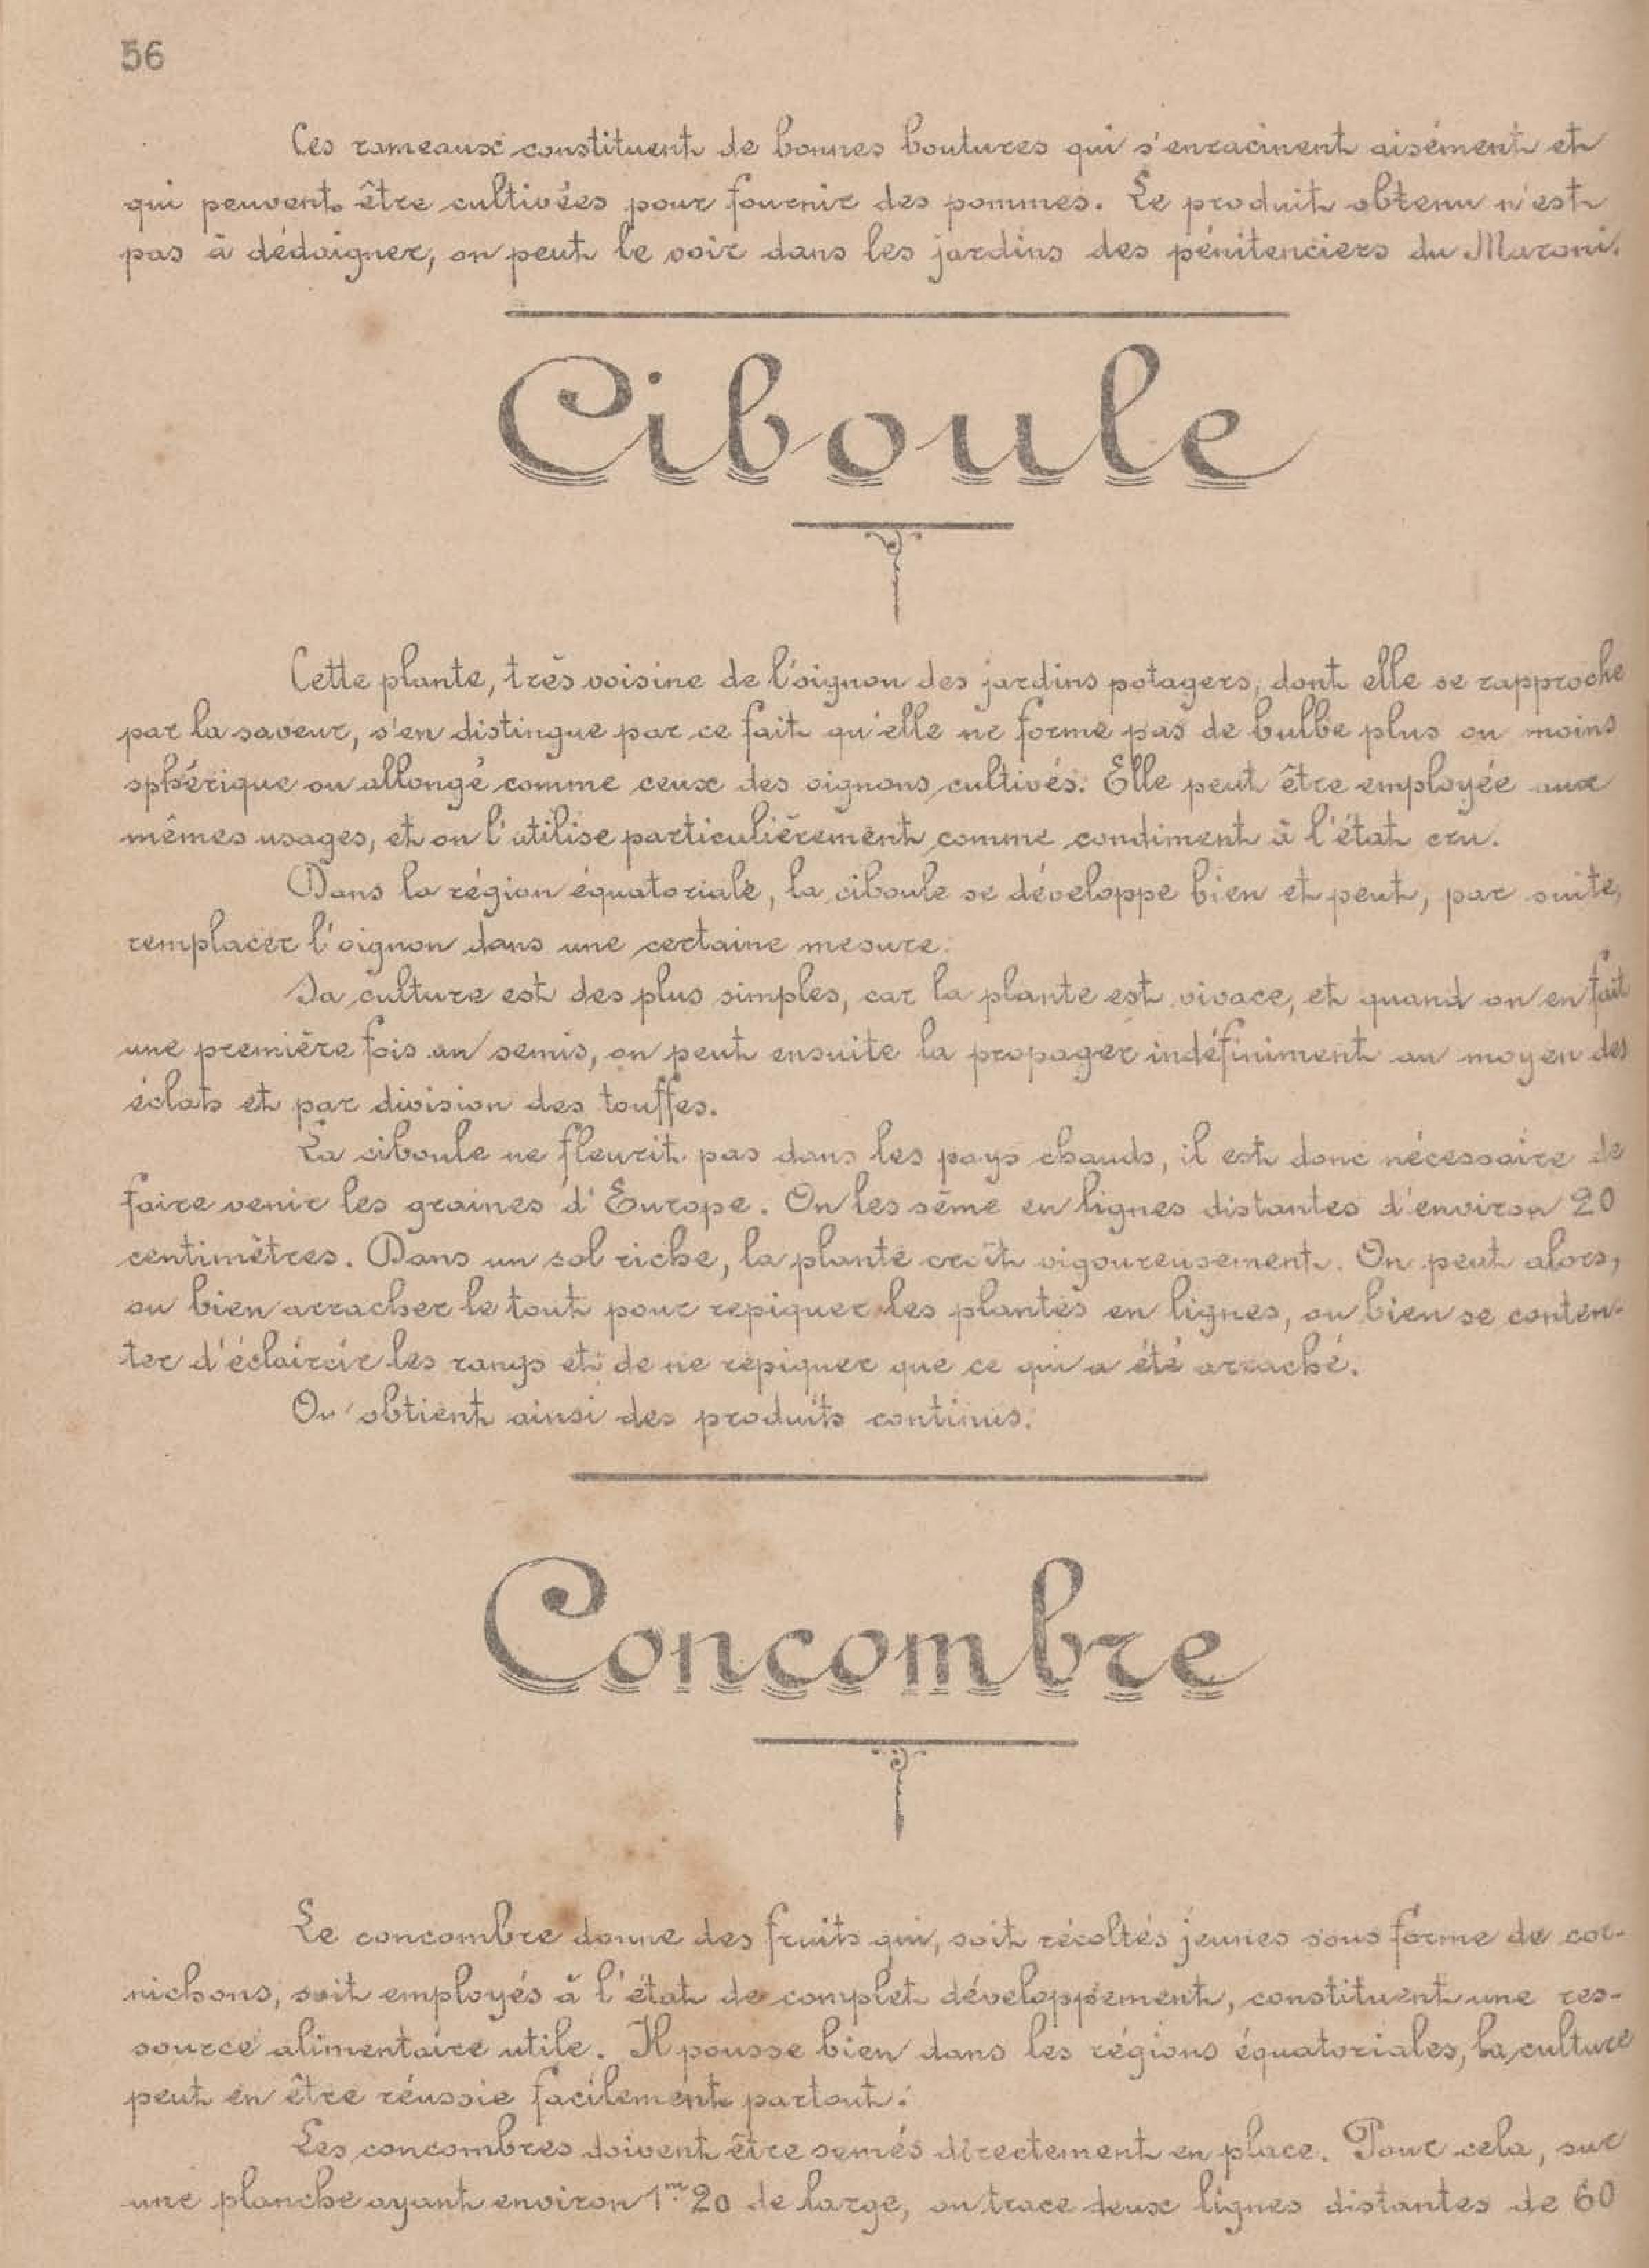 56
Ces rameaux constituent de bonnes boutures qui s'enracinent aisément et
qui peuvent être cultivées pour fournir des pommes. Le produit obtenu n'est
pas à dédaigner, on peut le voir dans les jardins des pénitenciers du Maroni.
Ciboule
Cette plante, très voisine de l'oignon des jardins potagers, dont elle se rapproche
par la saveur, s'en distingue par ce fait qu'elle ne forme pas de bulbe plus ou moins
sphérique ou allongé comme ceux des oignons cultivés. Elle peut être employée aux
mêmes usages, et on l'utilise particulièrement comme condiment à l'état cru.
Dans la région équatoriale, la ciboule se développe bien et peut, par suite,
remplacer l'oignon dans une certaine mesure.
Sa culture est des plus simples, car la plante est vivace, et quand on en fait
une première fois un semis, on peut ensuite la propager indéfiniment au moyen des
éclats et par division des touffes.
La ciboule ne fleurit pas dans les pays chauds, il est donc nécessaire de
faire venir les graines d'Europe. On les sème en lignes distantes d'environ 20
centimètres. Dans un sol riche, la plante croît vigoureusement. On peut alors,
ou bien arracher le tout pour repiquer les plantes en lignes, ou bien se conten-
ter d'éclaircir les rangs et de ne repiquer que ce qui a été arraché.
On obtient ainsi des produits continus.
Concombre
Le concombre donne des fruits qui, soit récoltés jeunes sous forme de cor-
nichons, soit employés à l'état de complet développement, constituent une res-
source alimentaire utile. Il pousse bien dans les régions équatoriales, la culture
peut en être réussie facilement partout.
Les concombres doivent être semés directement en place. Pour cela, sur
une planche ayant environ 1m.20 de large, on trace deux lignes distantes de 60